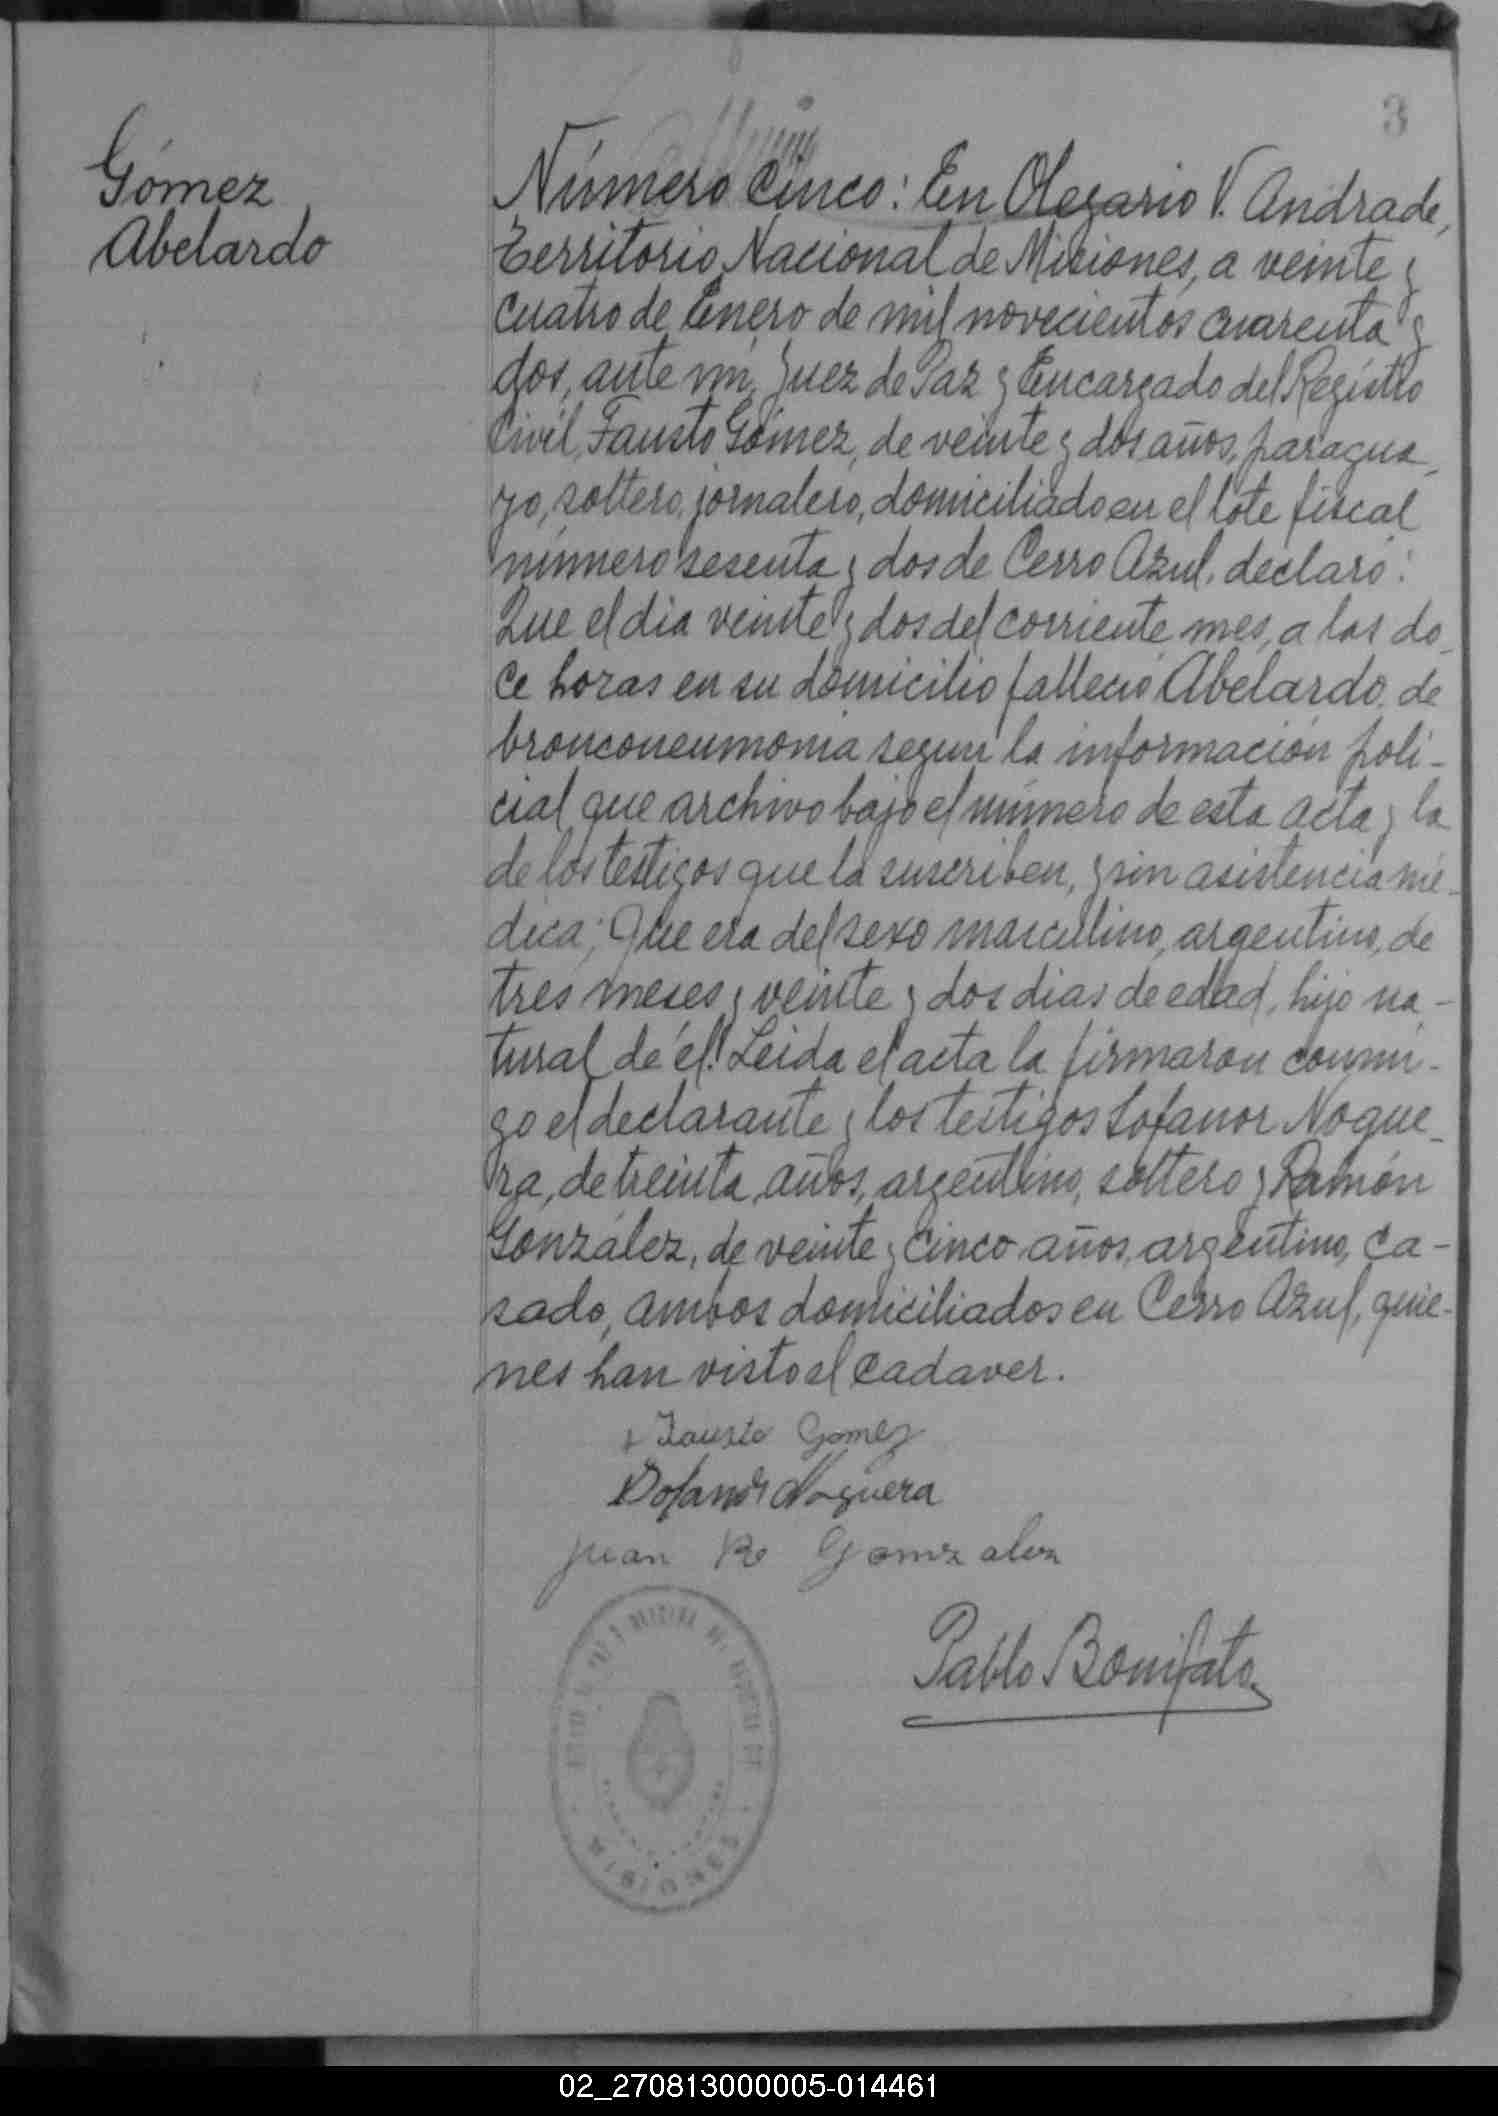 3
Gómez
Abelardo
Número Cinco: En Olegario V. Andrade,
Territorio Nacional de Misiones, a veinte y
cuatro de Enero de mil novecientos cuarenta y
dos, ante mí, Juez de Paz y Encargado del Registro
Civil, Fausto Gómez, de veinte y dos años, paragua-
yo, soltero, jornalero, domiciliado en el lote fiscal
número sesenta y dos de Cerro Azul, declaró:
Que el día veinte y dos del corriente mes, a las do-
ce horas en su domicilio falleció Abelardo, de
bronconeumonia segun la información poli-
cial que archivo bajo el número de esta acta y la
de los testigos que la suscriben, y sin asistencia mé-
dica; Que era del sexo masculino, argentino, de
tres meses y veinte y dos dias de edad, hijo na-
tural de él. Leida el acta la firmaron conmi-
go el declarante y los testigos Sofanor Nogue-
ra, de treinta años, argentino, soltero y Ramón
González, de veinte y cinco años, argentino, ca-
sado, ambos domiciliados en Cerro Azul, quie-
nes han visto el cadaver.
Fausto Gomez
Sofanor Noguera
Juan Ro Gomzalez
Pablo Bonifato
MISIONES
02_270813000005-014461